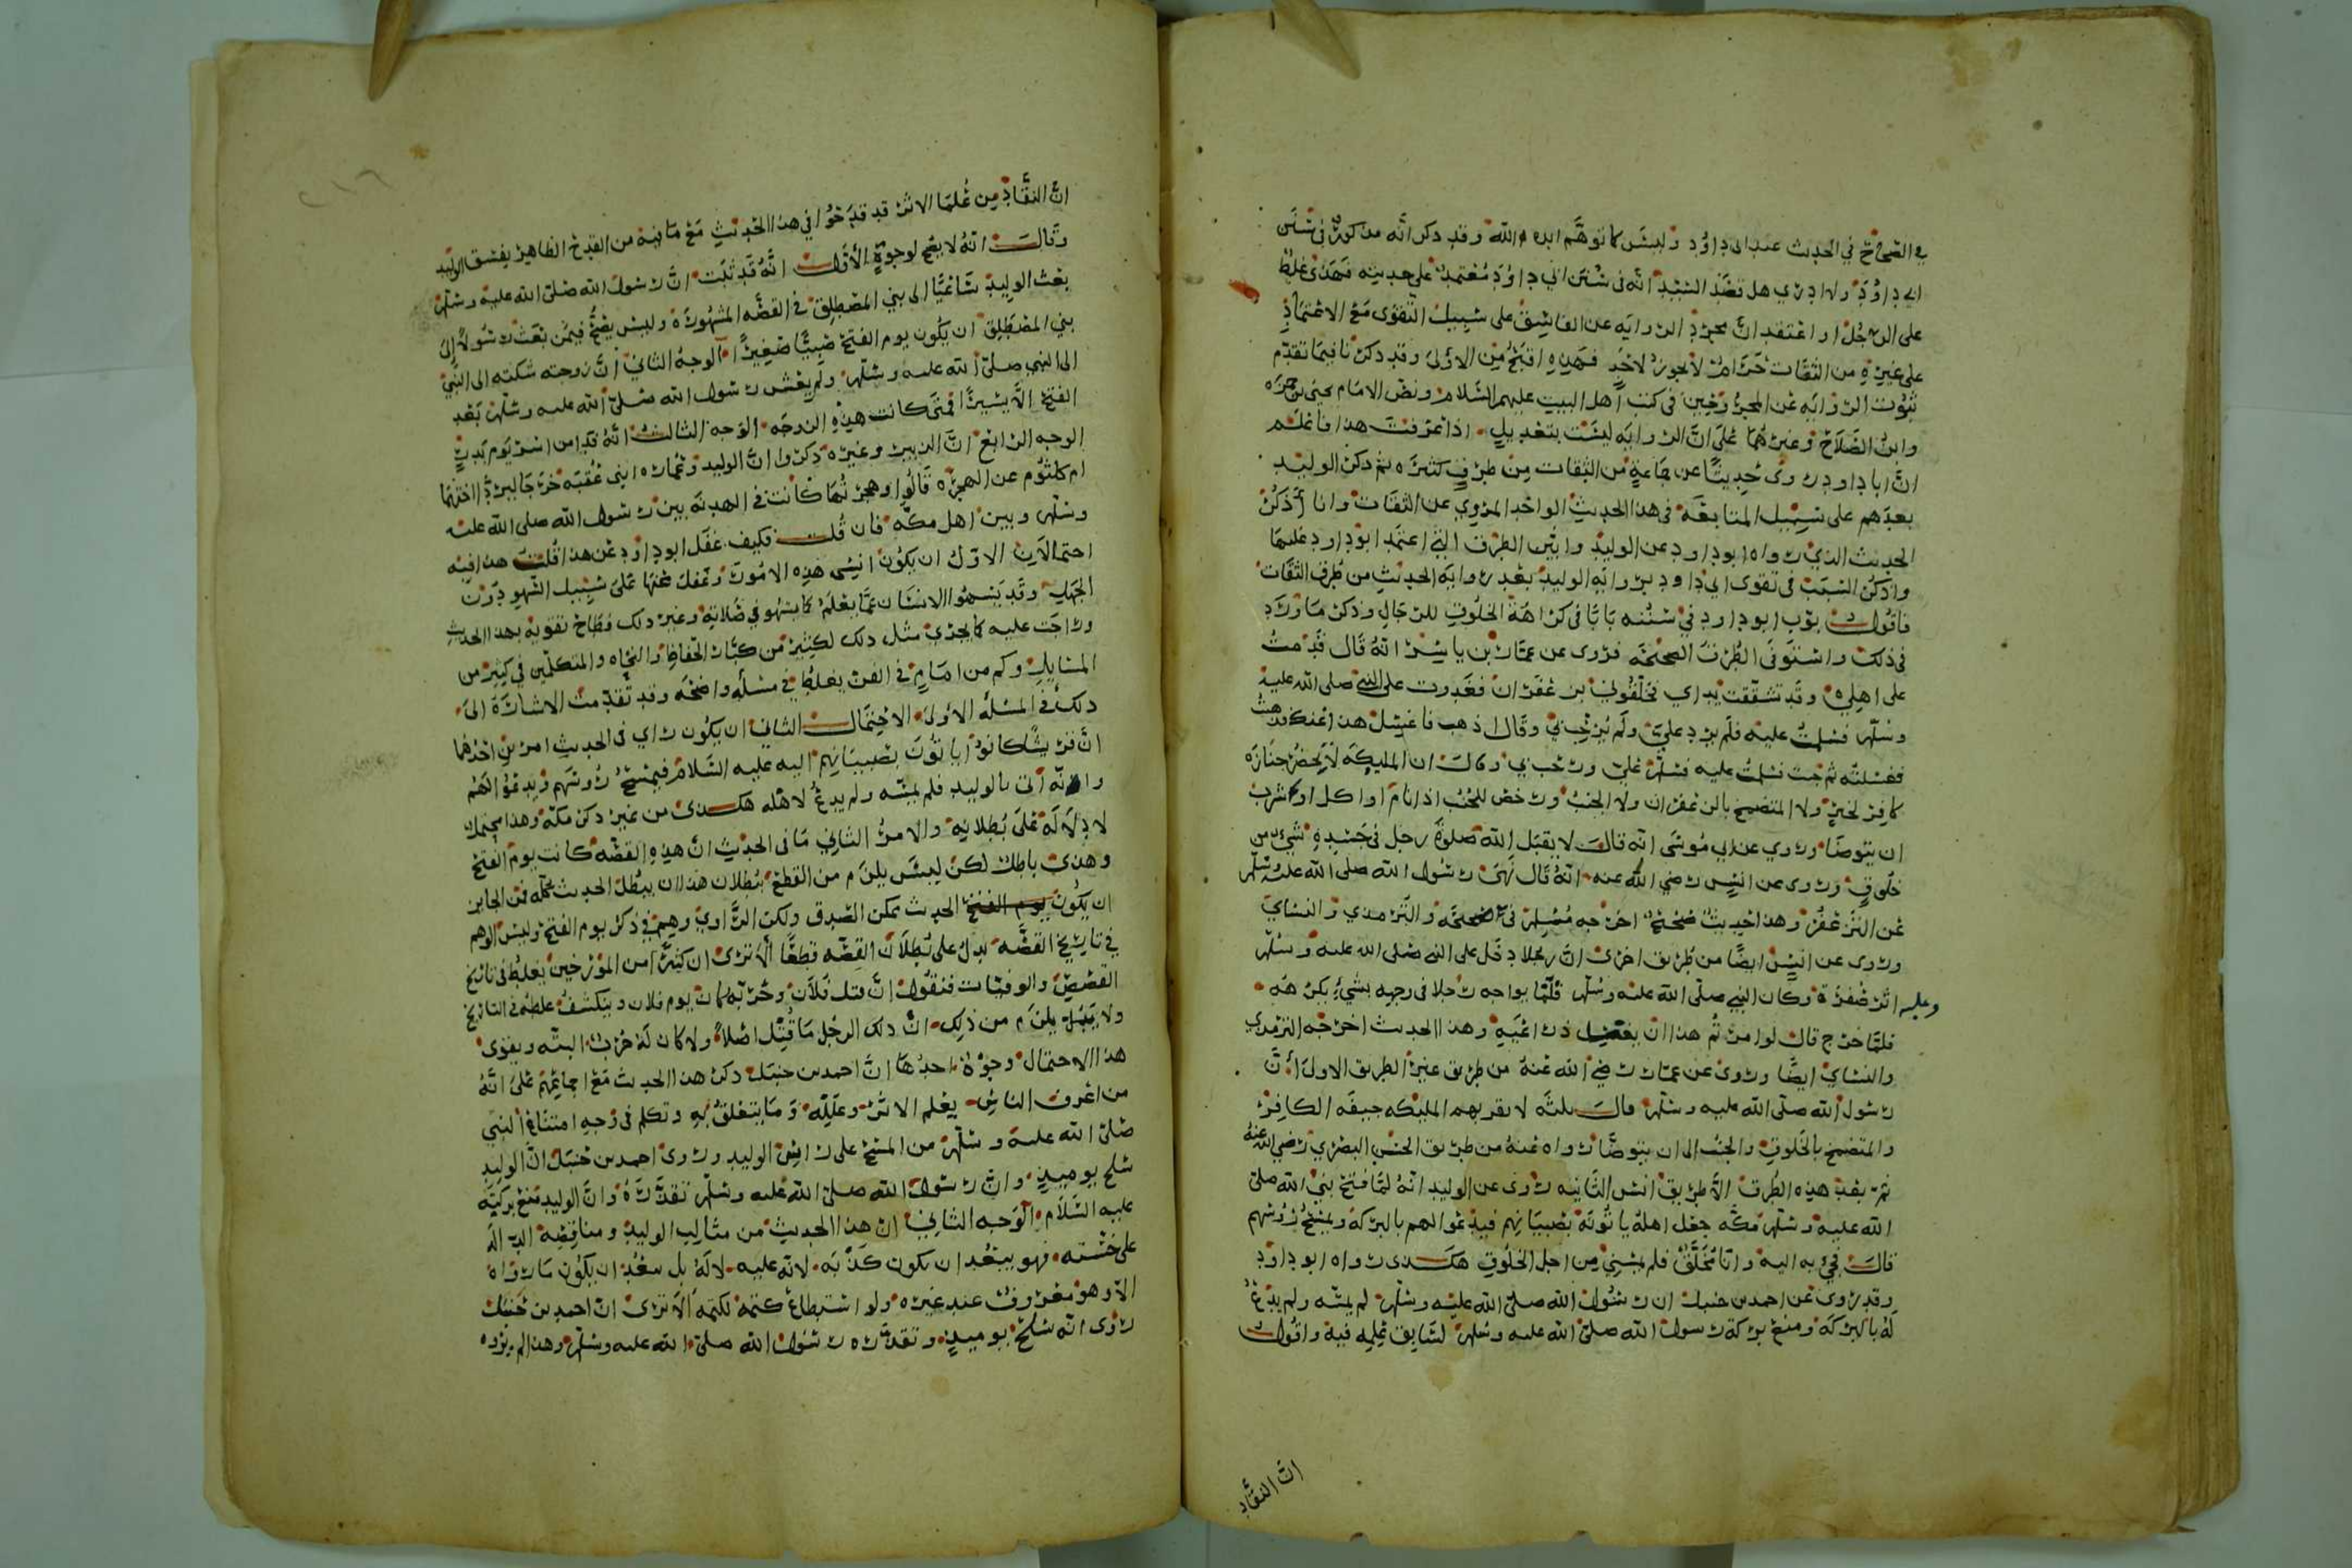 في الصحاح في الحديث عند ابي داؤد وليس كما توهم ايده الله وقد ذكر انه مذكور في سنن
ابي داؤد ولا ادري هل قصد السيد انه في سنن ابي داؤد معتمد على حديثه فهذى غلط
على الرجل او اعتقد ان مجرد الروايه عن الفاسق على سبيل التقوى مع الاعتماد
على غيره من الثقات حرام لا يجوز لاحد فهذه اقبح من الاولى وقد ذكرنا فيما تقدم
ثبوت الروايه عن المجروحين في كتب اهل البيت عليهم السلام ونص الامام يحيى بن حمزه
وابن الصلاح وغيرهما على ان الروايه ليست بتعديل اذا عرفت هذا فاعلم
ان ابا داود روى حديثا عن جماعة من الثقات من طرق كثيره ثم ذكر الوليد
بعدهم على سبيل المتابعه في هذا الحديث الواحد المروي عن الثقات وانا أذكر
الحديث الذي رواه ابو داود عن الوليد وابين الطرق التي اعتمد ابو داود عليها
واذكر السبب في تقوى ابي داود برواية الوليد بعد رواية الحديث من طرق الثقات
فاقول بوب ابو داود في سننه بابا في كراهة الخلوق للرجال وذكر ما ورد
في ذلك واستوفى الطرق الصحيحه فروى عن عمار بن ياسر انه قال قدمت
على اهلي وقد تشققت يداي فخلقوني بزعفران فغدوت على النبي صلى الله عليه
وسلم فسلمت عليه فلم يرد علي ولم يرحب بي وقال اذهب فاغسل هذا عنك فذهبت
فغسلته ثم جئت فسلمت عليه فسلم علي ورحب بي وقال ان المليكه لا تحضر جنازه
كافر بخير ولا المتضمخ بالزعفران ولا الجنب ورخص للجنب اذا نام او اكل او شرب
ان يتوضا وروي عن ابي موسى انه قال لا يقبل الله صلوة رجل في جسده شيء من
خلوق وروى عن انس رضي الله عنه انه قال نهى رسول الله صلى الله عليه وسلم
عن التزعفر وهذا حديث صحيح اخرجه مسلم في صحيحه والترمذي والنساي
وروى عن انس ايضا من طريق اخرى ان رجلا دخل على النبي صلى الله عليه وسلم
وعليه اثر صفرة وكان النبي صلى الله عليه وسلم قلما يواجه رجلا في وجهه بشيء يكرهه
فلما خرج قال لو امرتم هذا ان يغسل ذراعيه وهذا الحديث اخرجه الترمذي
والنساي ايضا وروى عن عمار رضي الله عنه من طريق غير الطريق الاولى أن
رسول الله صلى الله عليه وسلم قال ثلثه لا تقربهم المليكه جيفه الكافر
والمتضمخ بالخلوق والجنب الى ان يتوضا رواه عنه من طريق الحسن البصري رضي الله عنه
ثم بعد هذه الطرق الا طريق انس الثانيه روى عن الوليد انه لما فتح نبي الله صلى
الله عليه وسلم مكه جعل اهله ياتونه بصبيانهم فيدعوا لهم بالبركة ويمسح رؤسهم
قال فجيء به اليه وانا مخلق فلم يمسني من اجل الخلوق هكـذى رواه ابو داود
وقد روى عن احمد بن حنبل ان رسول الله صلى الله عليه وسلم لم يمسه ولم يدع
له بالبركه ومنع بركة رسول الله صلى الله عليه وسلم لسابق علمه فيه واقول
ان النقاد
ان النقاد من علما الاثر قد قدحوا في هذا الحديث مع ما فيه من القدح الظاهر بفسق الوليد
وقالت انه لا يصح لوجوه الأول انه قد ثبت ان رسول الله صلى الله عليه وسلم
بعث الوليد ساعيا الى بني المصطلق في القصه المشهوره وليس يصح فيمن بعث رسولا إلى
بني المصطلق ان يكون يوم الفتح صبيا صغيرا الوجه الثاني أن زوجته شكته الى النبي
الى النبي صلى الله عليه وسلم ولم يعش رسول الله صلى الله عليه وسلم بعد
الفتح الا يسيرا فمتى كانت هذه الزوجه الوجه الثالث انه قدم اسر يوم بدر
الوجه الرابع ان الزبير وغيره ذكروا ان الوليد وعماره ابني عقبه خرجا ليردا اختهما
ام كلثوم عن الهجره قالوا وهجرتها كانت في الهدنه بين رسول الله صلى الله عليه
وسلم وبين اهل مكه فان قلت فكيف غفل ابو داود عن هذا قلت هذا فيه
احتمالان الاول ان يكون نسي هذه الامور وغفل عنها على سبيل السهو دون
الجهل وقد يسهوا الانسان عما يعلم كما يسهو في صلاته وغير ذلك فطاح تقويه بهذا الحديث
وراجت عليه كما يجري مثل ذلك لكثير من كبار الحفاظ والنحاه والمتكلمين في كثير من
المسايل وكم من امام في الفن يغلط في مسله واضحه وقد تقدمت الاشارة الى
ذلك في المسله الاولى الاحتمال الثاني ان يكون راي في الحديث امرين احدهما
ان قريشا كانوا ياتون بصبيانهم اليه عليه السلام فيمسح رؤسهم ويدعوا لهم
وانه أتى بالوليد فلم يمسه ولم يدع لاهله هكـذى من غير ذكر مكه وهذا محتمل
لا دلالة على بطلانه والامر الثاني ما في الحديث ان هذه القصه كانت يوم الفتح
وهذى باطل لكن ليس يلزم من القطع ببطلان هذا ان يبطل الحديث كله فمن الجايز
ان يكون يوم الفتح الحديث ممكن الصدق ولكن الراوي وهم في ذكر يوم الفتح وليس الوهم
في تاريخ القصه يدل على بطلان القصه قطعا ألا ترى ان كثيرا من المؤرخين يغلط في تاريخ
القصص والوفيات فنقول ان قتل فلان وحربه كان يوم فلان وينكشف غلطه في التاريخ
ولا يلزم من ذلك ان ذلك الرجل ما قتل اصلا ولا كان له حرب البته ويقوى
هذا الاحتمال وجوه احدها ان احمد بن حنبل ذكر هذا الحديث مع اجماعهم على انه
من اعرف الناس بعلم الاثر وعلله وما يتعلق به وتكلم في وجه امتناع النبي
صلى الله عليه وسلم من المسح على راس الوليد وروى احمد بن حنبل ان الوليد
سلح يوميذ وان رسول الله صلى الله عليه وسلم تقذره وان الوليد منع بركته
عليه السلام الوجه الثاني ان هذا الحديث من مثالب الوليد ومناقضه الداله
على خسته فهو يبعد ان يكون كذبه لانه عليه لا له بل يبعد ان يكون ما رواه
الا وهو معروف عند غيره ولو استطاع كتمه لكتمه الا ترى ان احمد بن حنبل
روى انه سلح يوميذ وتقذره رسول الله صلى الله عليه وسلم وهذا لم يروه